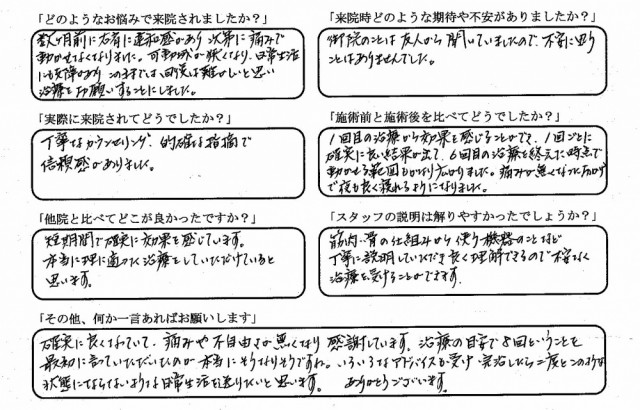 「どのようなお悩みで来院されましたか？」
数ヶ月前に右肩に違和感があり次第に痛みで
動かせなくなりました。可動域が狭くなり、日常生活
にも支障があり このままでは回復は難かしいと思い
治療をお願いすることにしました。
「来院時どのような期待や不安がありましたか？」
御院のことは友人から聞いていましたので、不安に思う
ことはありませんでした。
「実際に来院されてどうでしたか？」
丁寧なカウンセリング、的確な指摘で
信頼感がありました。
「施術前と施術後を比べてどうでしたか？」
1回目の治療から効果を感じることができ、1回ごとに
確実に良い結果が出て、6回目の治療を終えた時点で
動かせる範囲もかなり広がりました。痛みが無くなったおかげ
で夜も良く寝れるようになりました。
「他院と比べてどこが良かったですか？」
短期間で確実に効果を感じています。
本当に理に適った治療をしていただけていると
思います。
「スタッフの説明は解りやすかったでしょうか？」
筋肉、骨の仕組みから使う機器のことなど
丁寧に説明していただき良く理解できるので不安なく
治療を受けることができます。
「その他、何か一言あればお願いします」
確実に良くなっていて、痛みや不自由さが無くなり感謝しています。治療の目安で8回ということを
最初に言っていただいたのが本当にそうなりそうですね。いろいろなアドバイスも受け、完治したら二度とこのような
状態にならないような日常生活を送りたいと思います。 ありがとうございます。